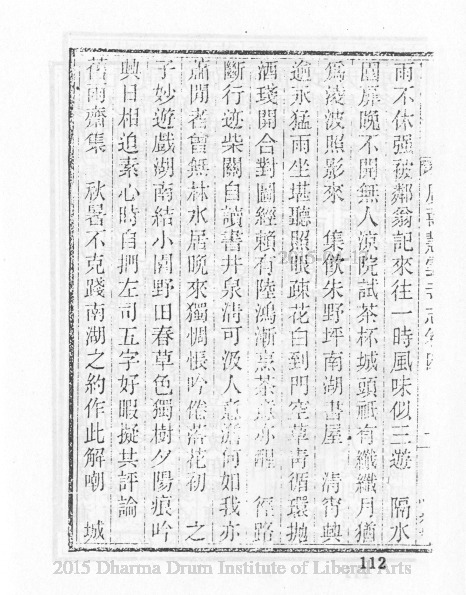 雨不休强被鄰翁記來往一時風味似三遊　隔水
園扉晚不開無人凉院試茶杯城頭祇有纖纖月猶
爲凌波照影來　集飲朱野坪南湖書屋　清宵興
逾永猛雨坐堪聽照眼疎花白到門空草青循環抛
酒琖開合對圖經賴有陸鴻漸烹茶亦醒　徑路
斷行迹柴關自讀書井泉清可汲人意澹何如我亦
蕭閒者曾無林水居晚來獨惆悵吟倦落花初　之
子妙遊戲湖南結小園野田春草色獨樹夕陽痕吟
興日相迫素心時自捫左司五字好暇擬共評論
舊雨齋集　秋暑不克踐南湖之約作此解嘲　城
112
2015 Dharma Drum Institute of Liberal Arts